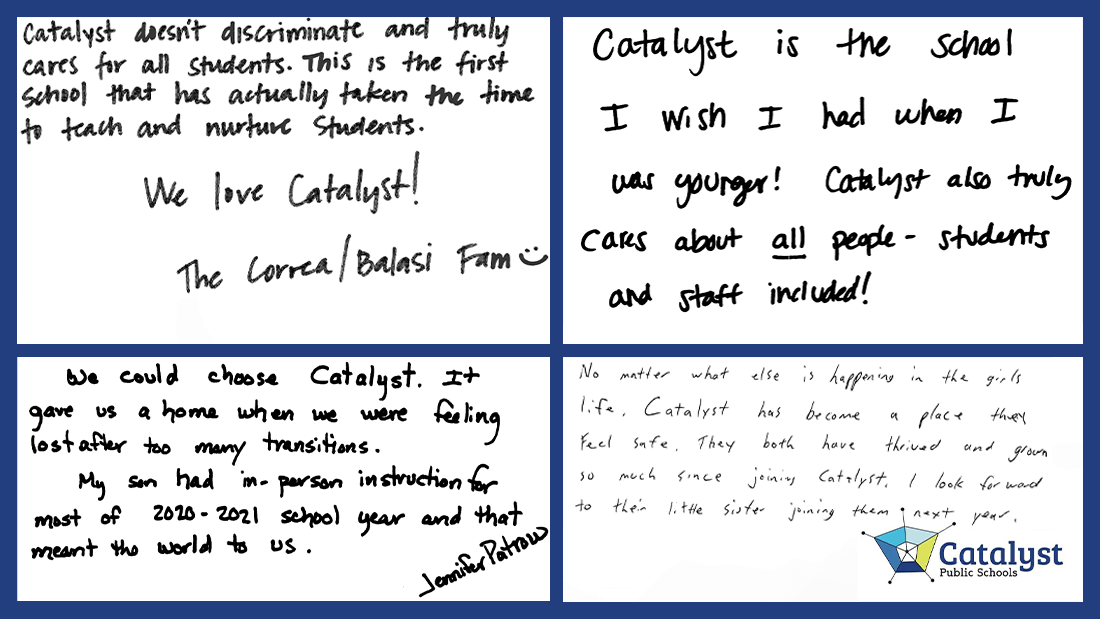 Catalyst doesn't discriminate and truly
cares for all students. This is the first
school that has actually taken the time
to teach and nurture students.
We love Catalyst!
The Correa/Balasi Fam
Catalyst is the school
I wish I had when I
was younger! Catalyst also truly
cares about all people - students
and staff included!
We could choose Catalyst. It
gave us a home when we were feeling
lost after too many transitions.
My son had in-person instruction for
most of 2020-2021 school year and that
meant the world to us.
Jennifer Patrow
No matter what else is happening in the girls
life, Catalyst has become a place they
feel safe. They both have thrived and grown
so much since joining Catalyst. I look forward
to their little sister joining them next year.
Catalyst
Public Schools